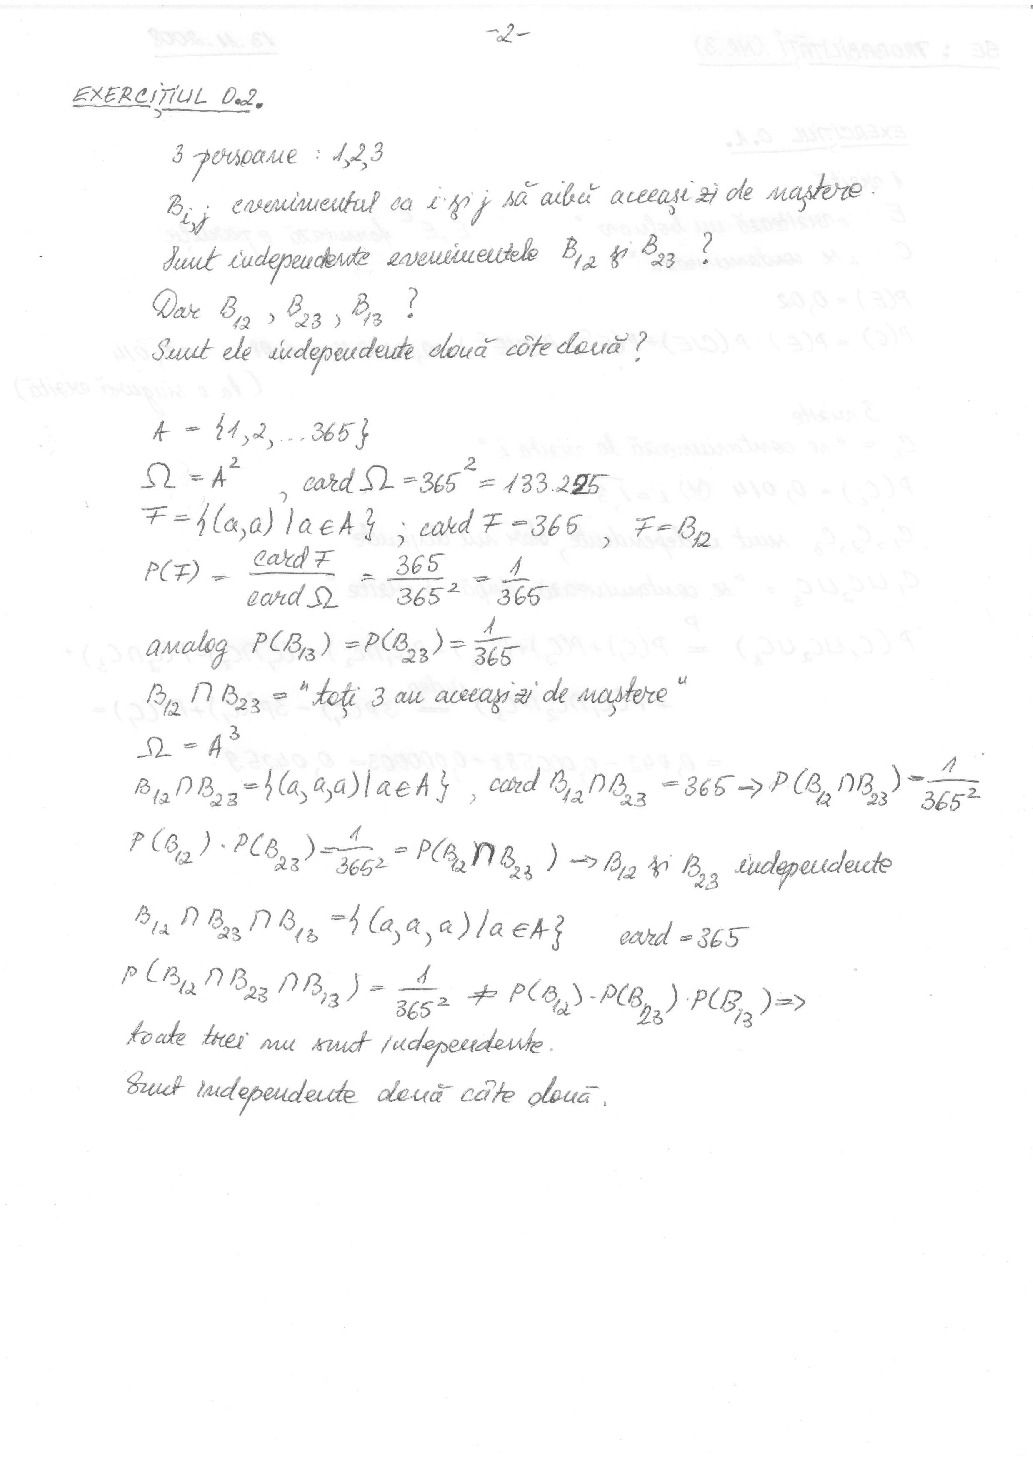 -2-
EXERCIȚIUL 0.2.
3 persoane : 1,2,3
B_{i,j} evenimentul ca i și j să aibă aceeași zi de naștere.
Sunt independente evenimentele B_{12} și B_{23} ?
Dar B_{12}, B_{23}, B_{13} ?
Sunt ele independente două câte două?
A = {1,2,...365}
Ω = A^2 , card Ω = 365^2 = 133.225
F = {(a,a) / a ∈ A} ; card F = 365 , F = B_{12}
P(F) = card F / card Ω = 365 / 365^2 = 1/365
analog P(B_{13}) = P(B_{23}) = 1/365
B_{12} ∩ B_{23} = "toți 3 au aceeași zi de naștere"
Ω = A^3
B_{12} ∩ B_{23} = {(a,a,a) / a ∈ A} , card B_{12} ∩ B_{23} = 365 → P(B_{12} ∩ B_{23}) = 1/365^2
P(B_{12}) · P(B_{23}) = 1/365^2 = P(B_{12} ∩ B_{23}) → B_{12} și B_{23} independente
B_{12} ∩ B_{23} ∩ B_{13} = {(a,a,a) / a ∈ A} card = 365
P(B_{12} ∩ B_{23} ∩ B_{13}) = 1/365^2 ≠ P(B_{12}) · P(B_{23}) · P(B_{13}) =>
toate trei nu sunt independente.
Sunt independente două câte două.